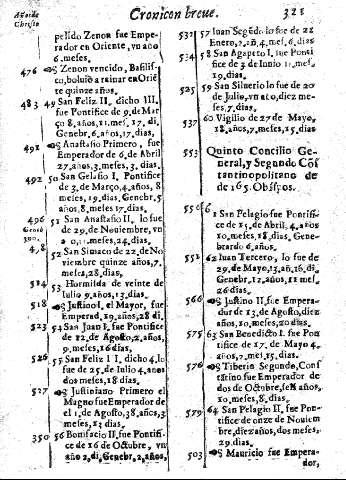 Año de Christo
Cronicon breue.
321
pelido Zenon fue Empe-
rador en Oriente, vn año
6.meses.
476 Zenon vencido, Basilis-
co, boluio a reinar en Oriē
te quinze años.
483 49 San Feliz II, dicho III.
fue Pontifice de 9, de Mar
ço 8, años, 11, mes, 17, di,
Genebr. 6, años, 17, dias,
491 Anastasio Primero, fue
Emperador de 6, de Abril
27, años, 3, meses, 3, dias.
492 50 San Gelasio I, Pontifice
de 3, de Março, 4, años, 8
meses, 19, dias, Genebr. 5,
años, 8, meses 17, dias.
496 51 San Anastasio II, lo fue
de 29, de Nouiembre, vn
a o, 11, meses, 24, dias.
498 52 San Simaco de 22, de No
uiembre quinze años, 7,
meses, 28, dias,
514 53 Hormilda de veinte de
Iulio 9, años, 13, dias.
518 Iustino I, el Mayor, fue
Emperad, 19, años, 28 di.
523 54 San Iuan I, fue Pontifice
de 12, de Agosto, 2, años,
9, meses, 16, dias.
526 55 San Feliz I I, dicho 4, lo
fue de 25, de Iulio 4, anos
dos meses, 18, dias.
527 Iustiniano Primero el
Magno fue Emperador de
el 1, de Agosto, 38, años, 3
meses, 13, dias.
350 56 Bonifacio II, fue Pontifi-
ce de 16 de Octubre, vn
año, 2, di, Genebr, 2, años,
532 57 Iuan Segūdo lo fue de 22
Enero, 2, añ, 4, mes, 6, dias
534 58 San Agapeto I, fue Ponti
fice de 3, de Iunio 11, mes,
19, dias.
59 San Siluerio lo fue de 20
de Iulio, vn año, diez me-
ses, 7, dias.
537 60 Vigilio de 27, de Mayo,
18, años, 7, meses, 15, dias
553 Quinto Concilio Ge-
neral, y Segundo Cōs
tantinopolitano de
de 165. Obispos.
556 61 San Pelagio fue Pontifi-
ce de 15, de Abril, 4, años
10, meses, 18, dias, Gene-
brardo 6, años.
561 62 Iuan Tercero, lo fue de
29, de Mayo, 13, añ, 16, di,
Genebr, 12, años, 11, mes,
26 dias.
566 Iustino II, fue Empera-
dor de 13, de Agosto, diez
años, 10, meses, 20, dias.
575 63 San Benedicto I, fue Pon
tifice de 17, de Mayo 4,
años, 2, mes, 15, dias.
576 Tiberio Segundo, Cons
tātino fue Emperador de
dos de Octubre, seis años,
10, meses, 8, dias.
579 64 San Pelagio II, fue Pon
tifice de onze de Nouiem
bre, diez años, dos meses,
29, dias.
503 Mauricio fue Empera-
dor,